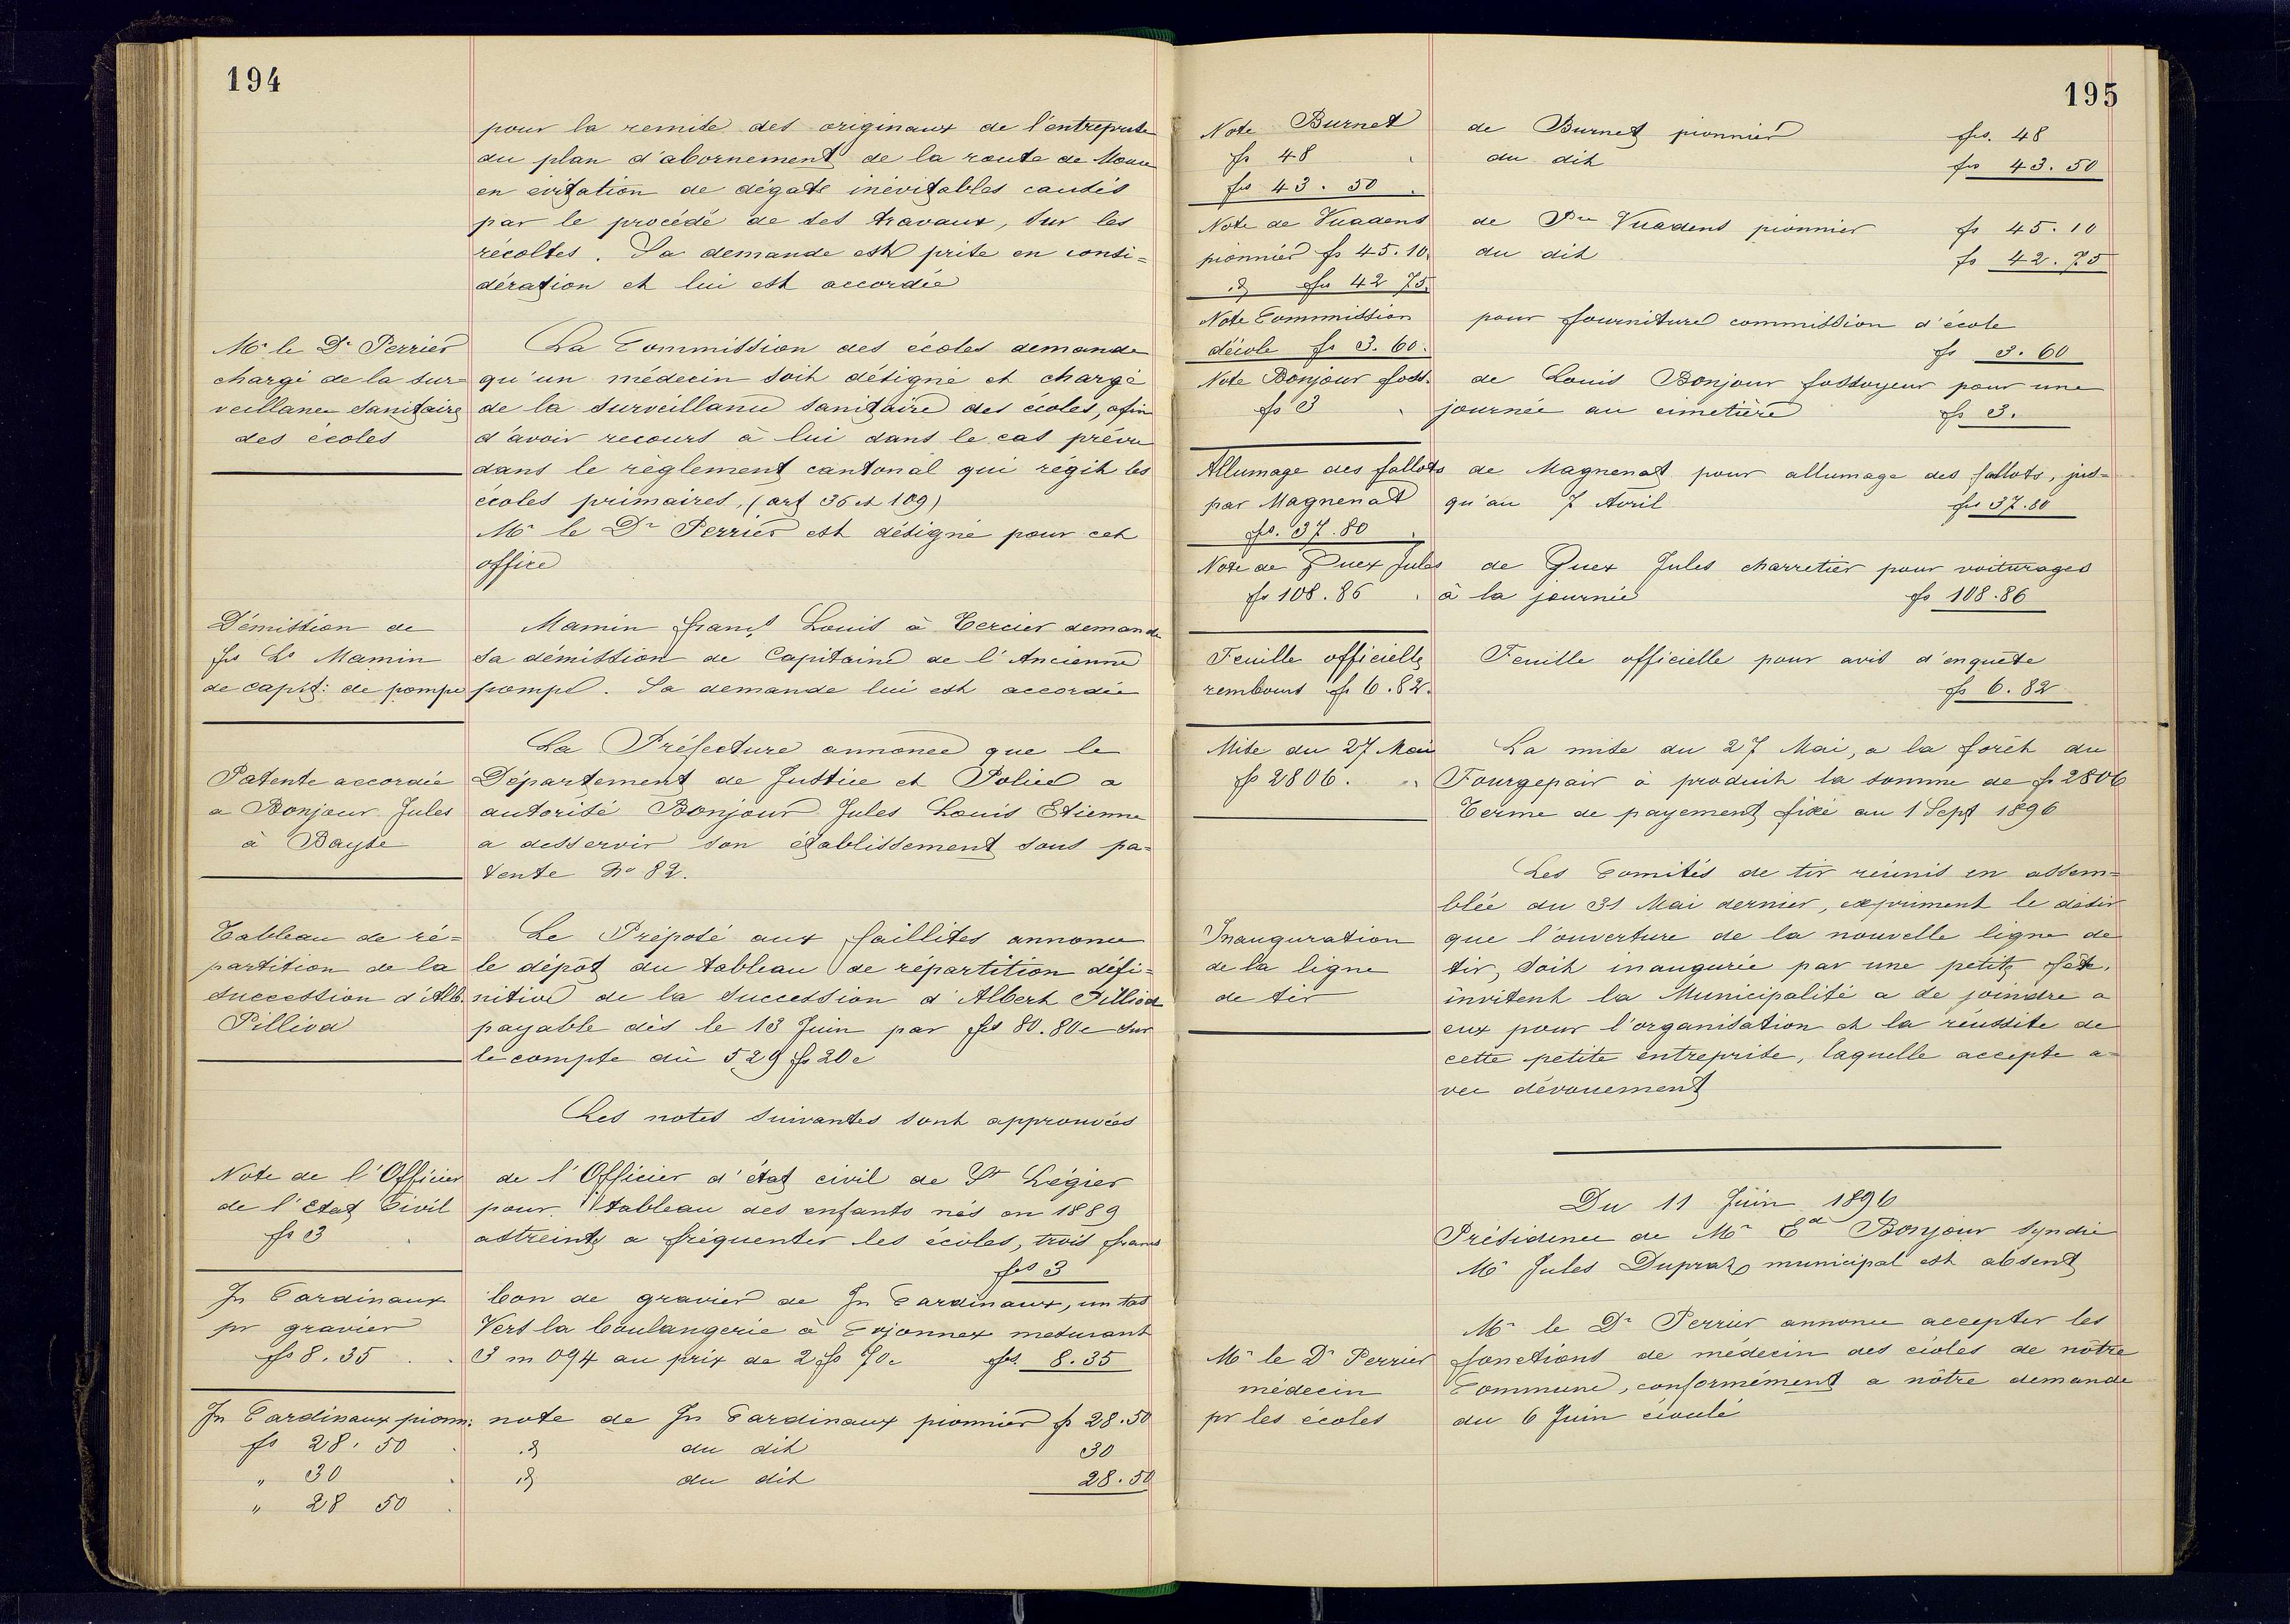 194
pour la remise des originaux de l'entreprise
du plan d'abornement de la route de
en évitation de dégats inévitables causés
par le procédé de ses travaux, sur les
récoltes. Sa demande est prise en consi=
dération et lui est accordée
Mr le Dr Perrier
chargé de la sur=
veillance sanitaire
des écoles
La Commission des écoles demande
qu'un médecin soit désigné et chargé
de la surveillance sanitaire des écoles, afin
d'avoir recours à lui dans le cas prévu
dans le règlement cantonal qui régit les
écoles primaires, (art 36 et 109)
Mr le Dr Perrier est désigné pour cet
office
Démission de
fçs Ls Mamin
de capit: de pompe
Mamin franç.s Louis à Tercier demande
sa démission de Capitaine de l'Ancienne
pompe. Sa demande lui est accordée
Patente accordée
a Bonjour Jules
à Bayse
La Préfecture annonce que le
Département de Justice et Police a
autorisé Bonjour Jules Louis Etienne
a desservir son établissement sous pa=
tente No 82.
Tableau de ré=
partition de la
succession d'Alb.
Pilliod
Le Préposé aux faillites annonce
le dépôt du tableau de répartition défi=
nitive de la succession d'Albert Pilliod
payable dès le 13 Juin par frs 80.80c sur
le compte dû 529 fr 20c
Les notes suivantes sont approuvées
Note de l'Officier
de l'état Civil
fr 3
de l'Officier d'état civil de St Légier
pour 1 tableau des enfants nés en 1889
astreints a fréquenter les écoles, trois francs
frs 3
Jn Cardinaux
pr gravier
fr 8.35
bon de gravier de Jn Cardinaux, un tas
Vers la boulangerie à Cojonnex mesurant
3 m 094 au prix de 2 fr 70c frs. 8.35
Jn Cardinaux pionn:
fr 28.50
" 30
" 28 50
note de Jn Cardinaux pionnier fr 28.50
id du dit 30
id du dit 28.50
195
Note Burnet
fr 48
frs 43.50
de Burnet pionnier frs. 48
du dit frs 43.50
Note de Vuadens
pionnier fr 45.10
id frs 42 75
de Vuadens pionnier fr 45.10
du dit fr 42.75
Note Commission
d'école fr 3.60
pour fourniture commission d'école
fr 3.60
Note Bonjour foss.
fr 3
de Louis Bonjour fossoyeur pour une
journée au cimetière fr 3.
Allumage des fallots
par Magnenat
fr. 37.80
de Magnenat pour allumage des fallots, jus=
qu'au 7 Avril frs 37.80
Note de Quex Jules
fr 108.86
de Quex Jules charretier pour voiturages
à la journée fr 108.86
Feuille officielle
rembours fr 6.82.
Feuille officielle pour avis d'enquête
fr 6.82
Mise du 27 Mai
fr 2806.
La mise du 27 Mai, a la forêt du
Fourgepair à produit la somme de fr 2806
Terme de payement fixé au 1 Sept 1896
Inauguration
de la ligne
de tir
Les Comités de tir réunis en assem=
blée du 31 Mai dernier, expriment le désir
que l'ouverture de la nouvelle ligne de
tir, soit inaugurée par une petite fête.
invitent la Municipalité a se joindre a
eux pour l'organisation et la réussite de
cette petite entreprise, laquelle accepte a=
vec dévouement
Du 11 Juin 1896
Présidence de Mr Ed Bonjour Syndic
Mr Jules Dupraz municipal est absent
Mr le Dr Perrier
médecin
pr les écoles
Mr le Dr Perrier annonce accepter les
fonctions de médecin des écoles de nôtre
Commune, conformément a nôtre demande
du 6 Juin écoulé